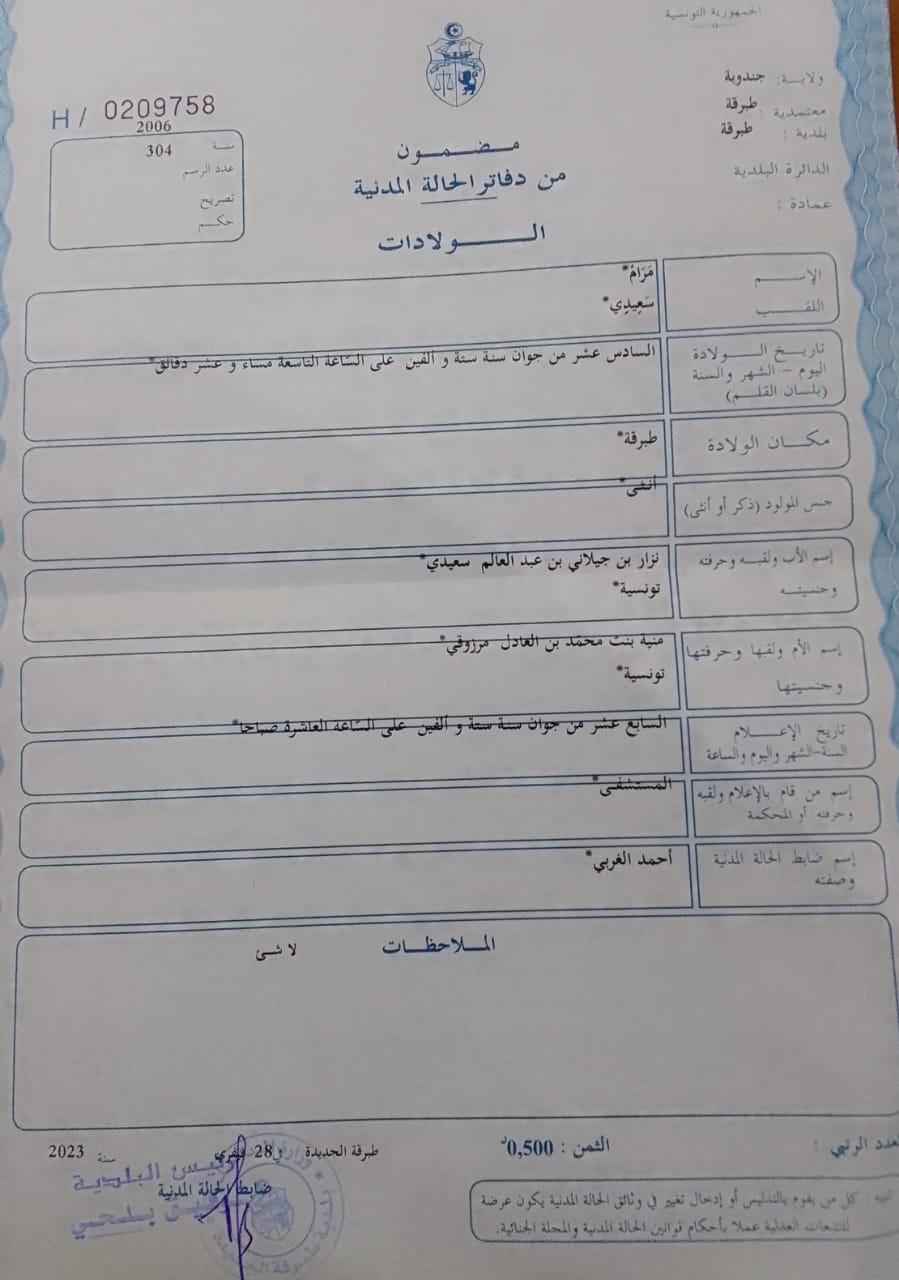 الجمهورية التونسية
ولاية: جندوبة
معتمدية : طبرقة
بلدية : طبرقة
الدائرة البلدية
عمادة :
H / 0209758
2006
سنة
304
عدد الرسم
تصريح
حكم
مضمون
من دفاتر الحالة المدنية
الولادات
الإسم
مَرَامْ*
اللقب
سَعِيدِي*
تاريخ الولادة
اليوم - الشهر والسنة
(بلسان القلم)
السادس عشر من جوان سنة ستة و ألفين على السّاعة التاسعة مساء و عشر دقائق*
مكان الولادة
طبرقة*
جنس المولود (ذكر أو أنثى)
أنثى*
إسم الأب ولقبه وحرفته
وجنسيته
نزار بن جيلاني بن عبد العالم سعيدي*
تونسية*
إسم الأم ولقبها وحرفتها
وجنسيتها
منية بنت محمّد بن العادل مرزوقي*
تونسية*
تاريخ الإعلام
السنة-الشهر واليوم والساعة
السابع عشر من جوان سنة ستة و ألفين على السّاعة العاشرة صباحا*
إسم من قام بالإعلام ولقبه
وحرفته أو المحكمة
المستشفى*
إسم ضابط الحالة المدنية
وصفته
أحمد الغربي*
الملاحظات
لا شئ
العدد الرتبي :
الثمن : 0,500د
طبرقة الجديدة في 28 فيفري سنة 2023
رئيس البلدية
ضابط الحالة المدنية
بلحي
تنبيه : كل من يقوم بالتدليس أو إدخال تغيير في وثائق الحالة المدنية يكون عرضة
للتتبعات العدلية عملا بأحكام قوانين الحالة المدنية والمجلة الجنائية.